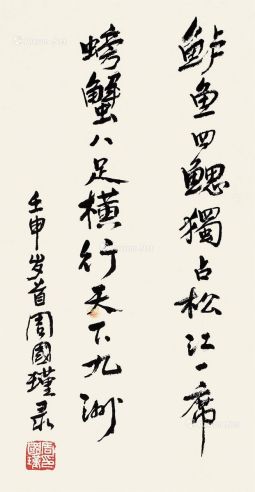 鲈鱼四鳃獨占松江一席
螃蟹八足橫行天下九洲
壬申岁首周國瑾录